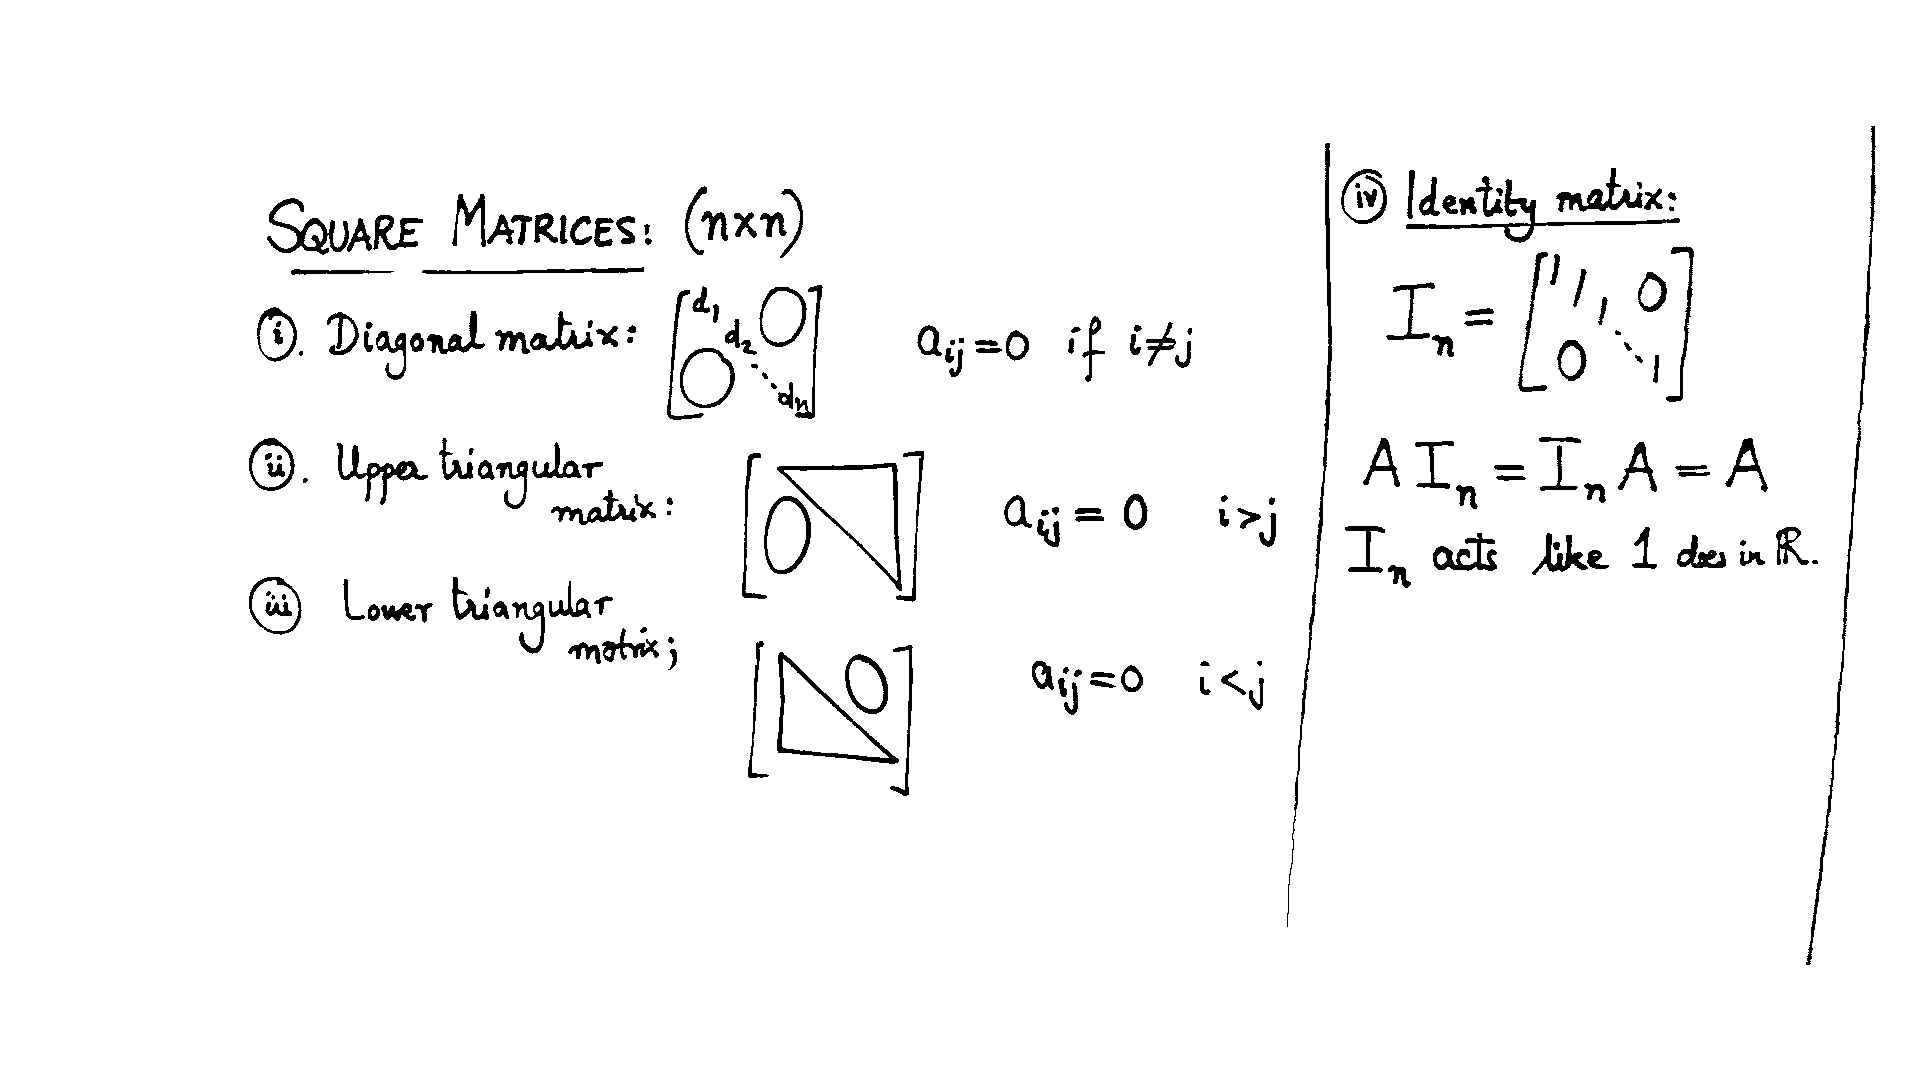 SQUARE MATRICES: (n×n)
(i). Diagonal matrix: [d₁ d₂ ⋱ dₙ 0 0] aᵢⱼ=0 if i≠j
(ii). Upper triangular
matrix: [0] aᵢⱼ = 0 i>j
(iii) Lower triangular
matrix; [0] aᵢⱼ=0 i<j
(iv) Identity matrix:
Iₙ = [1 1 1 ⋱ 1 0 0]
A Iₙ = Iₙ A = A
Iₙ acts like 1 does in ℝ.